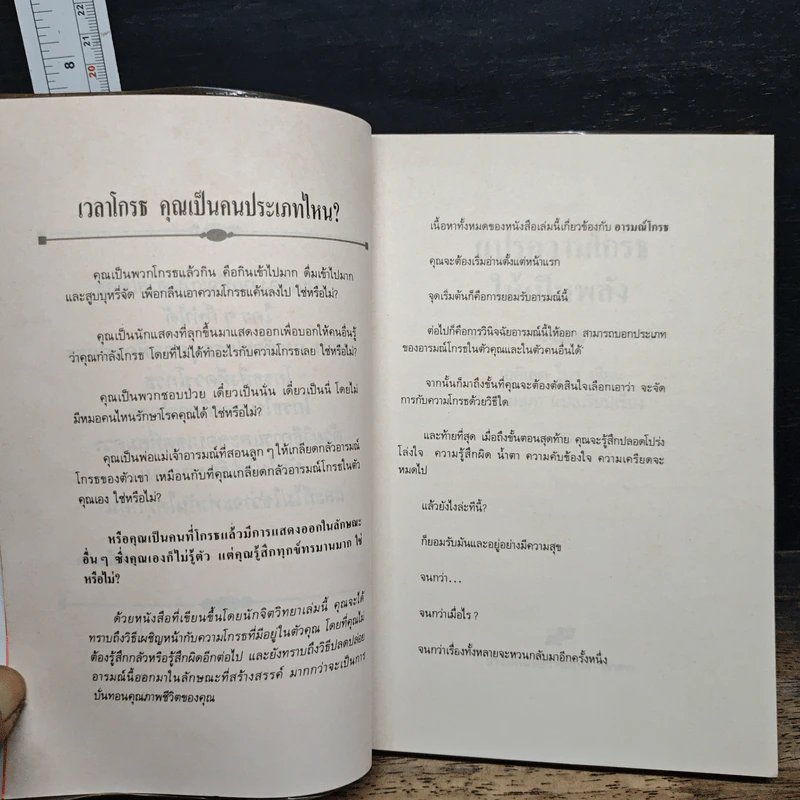 8
22
21
20
เวลาโกรธ คุณเป็นคนประเภทไหน?
คุณเป็นพวกโกรธแล้วกิน คือกินเข้าไปมาก ดื่มเข้าไปมาก
และสูบบุหรี่จัด เพื่อกลืนเอาความโกรธแค้นลงไป ใช่หรือไม่?
คุณเป็นนักแสดงที่ลุกขึ้นมาแสดงออกเพื่อบอกให้คนอื่นรู้
ว่าคุณกำลังโกรธ โดยที่ไม่ได้ทำอะไรกับความโกรธเลย ใช่หรือไม่?
คุณเป็นพวกชอบป่วย เดี๋ยวเป็นนั่น เดี๋ยวเป็นนี่ โดยไม่
มีหมอคนไหนรักษาโรคคุณได้ ใช่หรือไม่?
คุณเป็นพ่อแม่เจ้าอารมณ์ที่สอนลูกๆ ให้เกลียดกลัวอารมณ์
โกรธของตัวเขา เหมือนกับที่คุณเกลียดกลัวอารมณ์โกรธในตัว
คุณเอง ใช่หรือไม่?
หรือคุณเป็นคนที่โกรธแล้วมีการแสดงออกในลักษณะ
อื่นๆ ซึ่งคุณเองก็ไม่รู้ตัว แต่คุณรู้สึกทุกข์ทรมานมาก ใช่
หรือไม่?
ด้วยหนังสือที่เขียนขึ้นโดยนักจิตวิทยาเล่มนี้ คุณจะได้
ทราบถึงวิธีเผชิญหน้ากับความโกรธที่มีอยู่ในตัวคุณ โดยที่คุณไม่
ต้องรู้สึกกลัวหรือรู้สึกผิดอีกต่อไป และยังทราบถึงวิธีปลดปล่อย
อารมณ์นี้ออกมาในลักษณะที่สร้างสรรค์ มากกว่าจะเป็นการ
บั่นทอนคุณภาพชีวิตของคุณ
เนื้อหาทั้งหมดของหนังสือเล่มนี้เกี่ยวข้องกับ อารมณ์โกรธ
คุณจะต้องเริ่มอ่านตั้งแต่หน้าแรก
จุดเริ่มต้นก็คือการยอมรับอารมณ์นี้
ต่อไปก็คือการวินิจฉัยอารมณ์นี้ให้ออก สามารถบอกประเภท
ของอารมณ์โกรธในตัวคุณและในตัวคนอื่นได้
จากนั้นก็มาถึงขั้นที่คุณจะต้องตัดสินใจเลือกเอาว่า จะจัด
การกับความโกรธด้วยวิธีใด
และท้ายที่สุด เมื่อถึงขั้นตอนสุดท้าย คุณจะรู้สึกปลอดโปร่ง
โล่งใจ ความรู้สึกผิด น้ำตา ความคับข้องใจ ความเครียดจะ
หมดไป
แล้วยังไงล่ะทีนี้?
ก็ยอมรับมันและอยู่อย่างมีความสุข
จนกว่า...
จนกว่าเมื่อไร?
จนกว่าเรื่องทั้งหลายจะหวนกลับมาอีกครั้งหนึ่ง